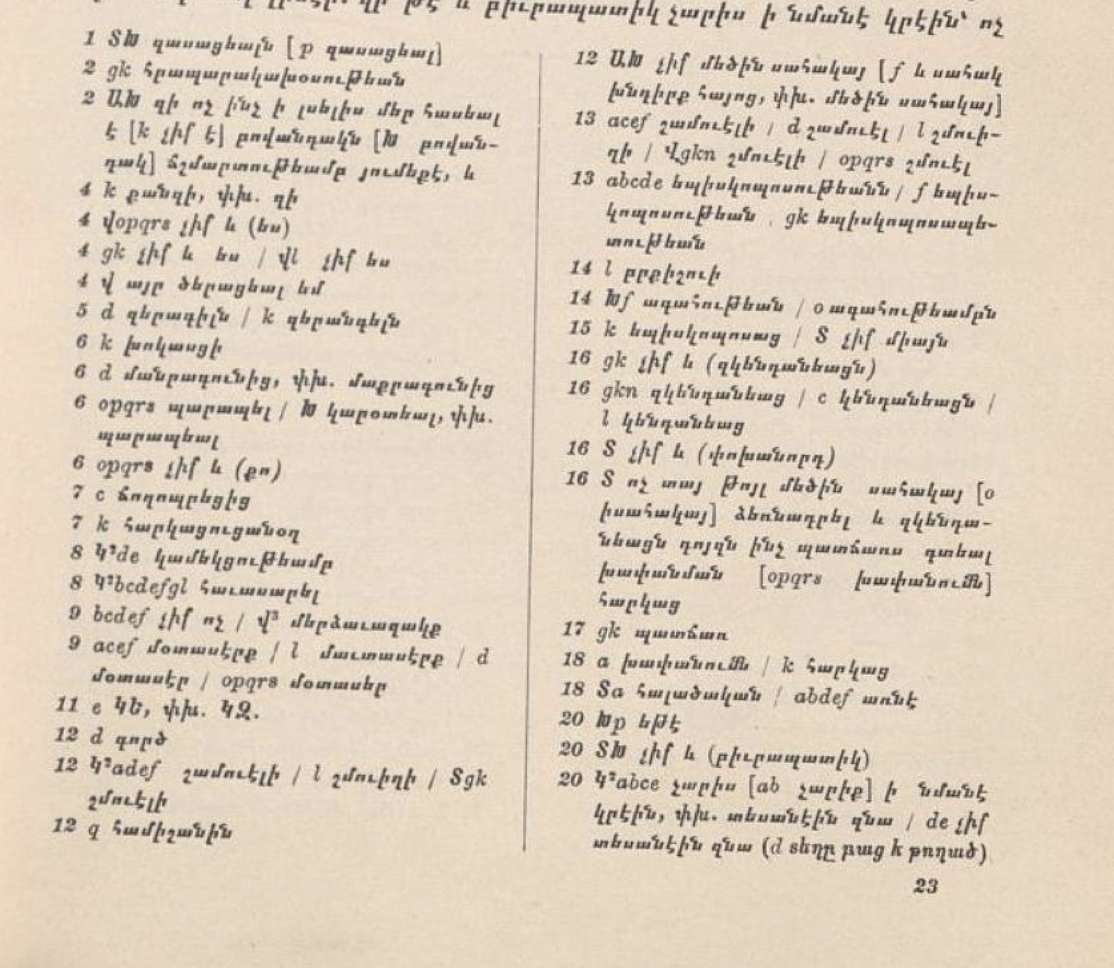 և բիւրապատիկ չարիս ի նմանէ կրէին՝ ոչ
1 ՏԽ զասացեալն [p զասացեալ]
2 gk հրապարակախօսութեան
2 ԱԽ զի ոչ ինչ ի լսելիս մեր հասեալ
է [k չիք է] բովանդակն [Խ բովան-
դակ] ճշմարտութեամբ յումեքէ, և
4 k քանզի, փխ. զի
4 վopqrs չիք և (ես)
4 gk չիք և ես / վl չիք ես
4 վ այր ծերացեալ եմ
5 d զերագիլն / k զերանգելն
6 k խոկասցի
6 d մանրագունից, փխ. մաքրագունից
6 opqrs պարապել / Խ կարօտեալ, փխ.
պարապեալ
6 opqrs չիք և (քո)
7 c ճողոպրեցից
7 k հարկացուցանօղ
8 Կ²de կամեկցութեամբ
8 Կ²bcdefgl հաւասարել
9 bcdef չիք ոչ / վ³ մերձաւագակք
9 acef մօտասէրք / l մատասէրք / d
մօտասէր / opqrs մօտասեր
11 e ԿԵ, փխ. ԿԶ.
12 d գործ
12 Կ²adef շամուէլի / l շմուիղի / Տgk
շմուելի
12 q համիշանին
12 ԱԽ չիք մեծին սահակայ [f և սահակ
խնդիրք հայոց, փխ. մեծին սահակայ]
13 acef շամուէլի / d շամուէլ / l շմուի-
ղի / Վgkn շմուէլի / opqrs շմուէլ
13 abcde եպիսկոպոսութեանն / f եպիս-
կոպոսութեան gk եպիսկոպոսապե-
տութեան
14 l բրքիշուի
14 Խf ագահութեան / o ագահութեամբն
15 k եպիսկոպոսաց / Տ չիք միայն
16 gk չիք և (զկենդանեացն)
16 gkn զկենդանեաց / c կենդանեացն /
l կենդանեաց
16 Տ չիք և (փոխանորդ)
16 Տ ոչ տայ թոյլ մեծին սահակայ [o
իսահակայ] ձեռնադրել և զկենդա-
նեացն դոյզն ինչ պատճառս գտեալ
խափանման [opqrs խափանումն]
հարկաց
17 gk պատճառ
18 a խափանումն / k հարկաց
18 Տa հալածական / abdef առնէ
20 Խp եթէ
20 ՏԽ չիք և (բիւրապատիկ)
20 Կ²abce չարիս [ab չարիք] ի նմանէ
կրէին, փխ. տեսանէին զնա / de չիք
տեսանէին զնա (d տեղը բաց է թողած)
23